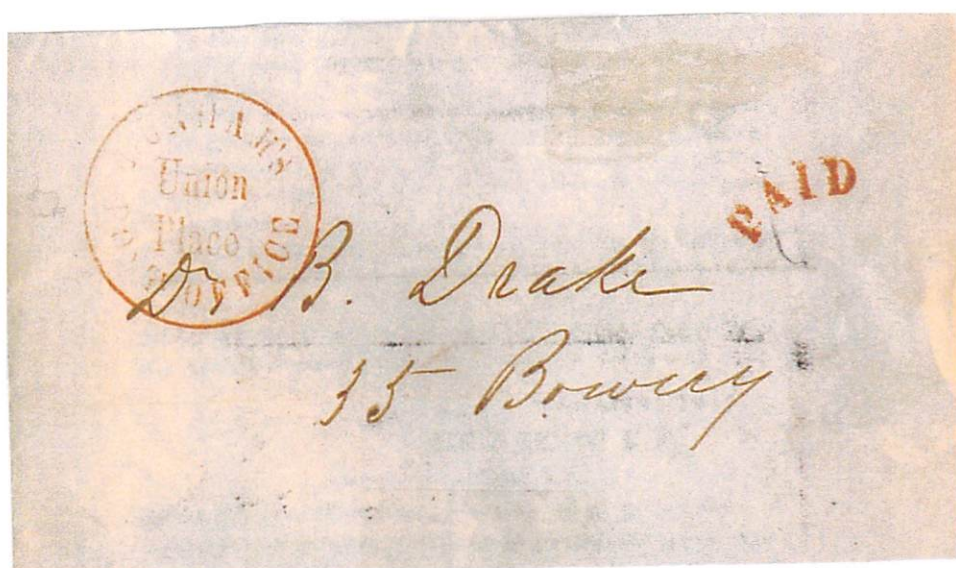 DUNHAM'S
Union
Place
POST OFFICE
PAID
Dr B. Drake
35 Bowery